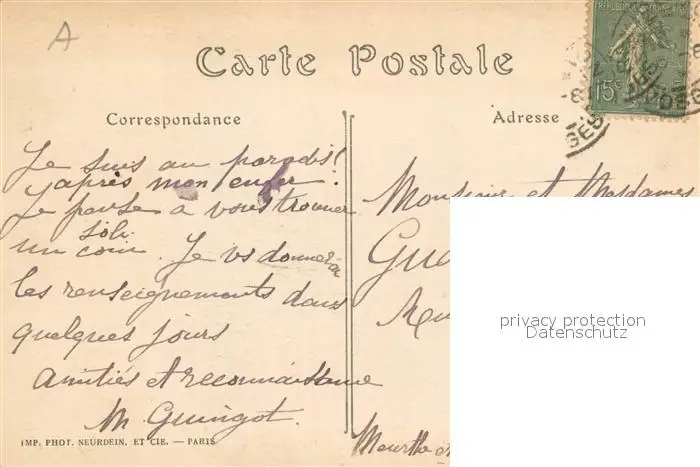 A
Carte Postale
RÉPUBLIQUE FRANÇAISE
15c
Correspondance
Adresse
Je suis au paradis!
après mon enfer!
Je pense à vous trouver
un joli coin. Je vs donnerai
les renseignements dans
quelques jours
Amitiés et reconnaissance
M. Guingot
IMP. PHOT. NEURDEIN. ET CIE. — PARIS
Monsieur et Mesdames
Gue
Meurthe et
privacy protection
Datenschutz